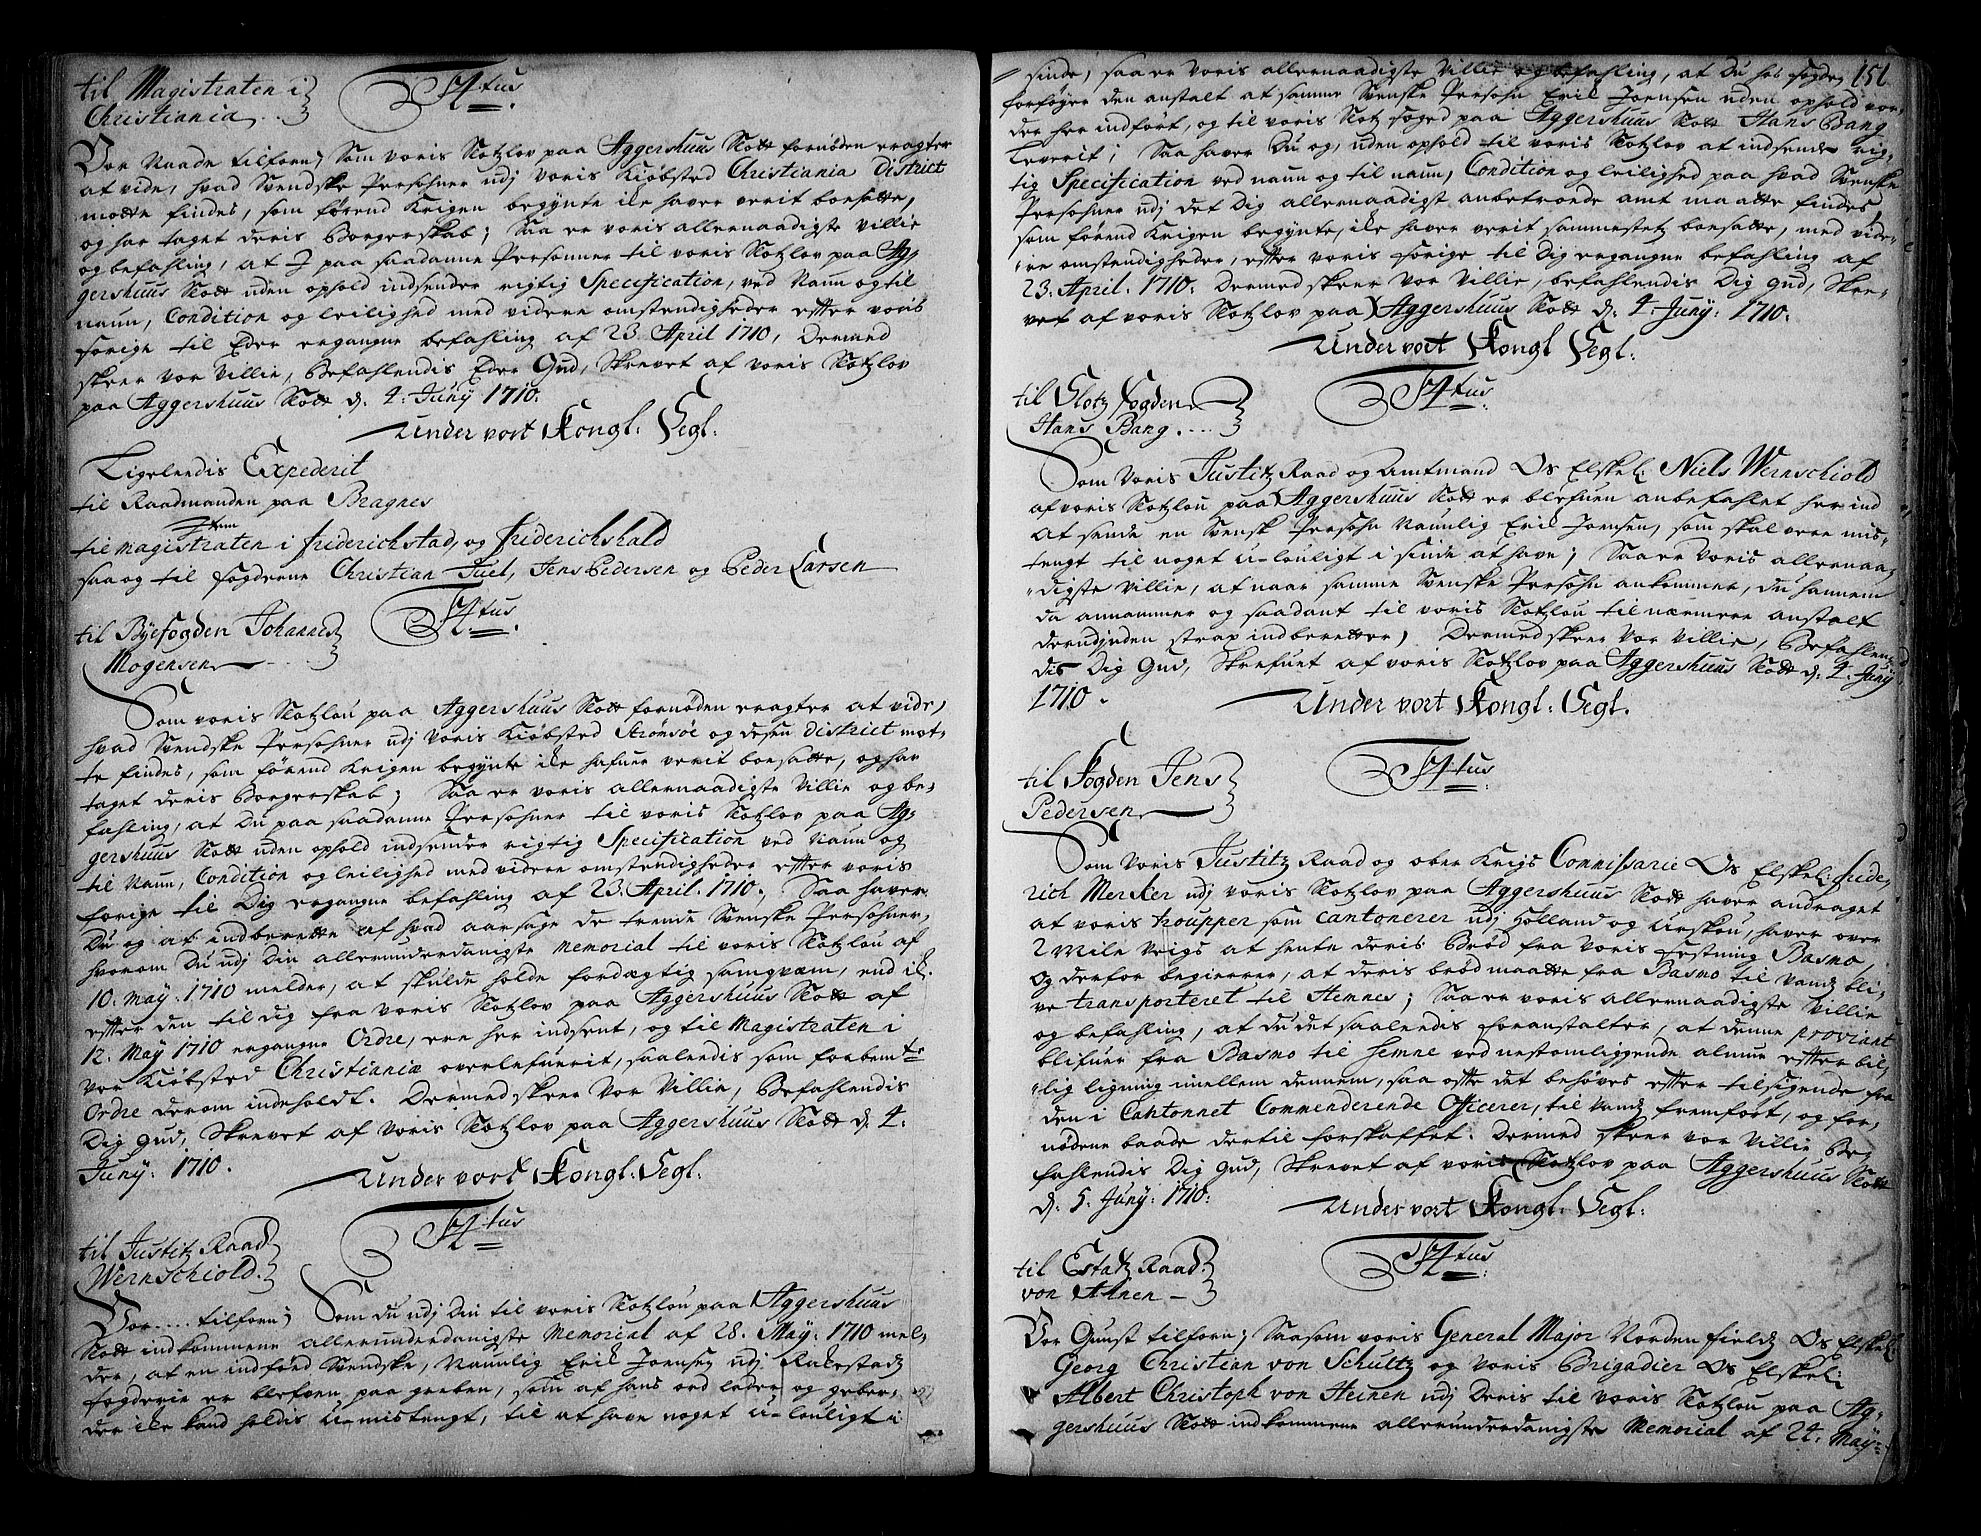 til Magistraten i
Christiania
F4tus.
Vor Naade tilforn; Som voris Slotzlov paa Aggershuus Slott fornøden eragter
at vide, hvad Svendske Persohner udj voris Kiøbsted Christiania District
motte findes, som førend Krigen begynte icke haver verit boesatte,
og har taget deris Borgerskab; Saa er voris allernaadigste Villie
og befahling, at I paa saadanne Personner til voris Slotzlov paa Ag-
gershuus Slott uden ophold indsender rigtig Specification, ved Naun og til
naun, Condition og leilighed med videre omstendigheder efter voris
forige til Eder ergangne befahling af 23 April 1710, Dermed
skeer vor Villie, Befahlendis Eder Gud, Skrevet af voris Slotzlov
paa Aggershuus Slott d. 4. Juny 1710.
Under vort Kongl: Segl:
Ligeledis Expederit
til Raadmanden paa Bragnes
Item
til magistraten i friderichstad, og friderichshald
saa og til fogderne Christian Juel, Jens Pedersen og Peder Larsen
til Byefogden Johannes
Mogensen
Som voris Slotzlou paa Aggershuus Slott fornøden eragter at vide,
hvad Svendske Persohner udj voris Kiøbsted Strømsøe og desen district mot-
te findes, som førend Krigen begynte icke hafuer verit boesatte, og har
taget deris Borgerskab; Saa er voris allernaadigste Villie og be-
fahling, at Du paa saadanne Persohner til voris Slotzlov paa Ag-
gershuus Slott uden ophold indsender rigtig Specification ved Naun og
til Naun, Condition og leilighed med videre omstendigheder efter voris
forige til Dig ergangne befahling af 23. April. 1710; Saa haver
Du og at indberette af hvad aarsage de trende Svenske Persohner,
hvorom Du udj Din allerunderdanigste memorial til voris Slotzlou af
10. may. 1710 melder, at skulde holde fordægtig samqvæm, end icke
efter den til dig fra voris Slotzlov paa Aggershuus Slott af
12. May 1710 ergangne Ordre, ere her indsent, og til Magistraten i
vor Kiøbsted Christiania overlefuerit, saaledis som forbemte
Ordre derom indeholdt. Dermed skeer vor Villie, Befahlendis
Dig Gud, Skrevet af voris Slotzlov paa Aggershuus Slott d. 4.
Juny. 1710.
Under vort Kongl: Segl.
til Justitz Raad
WernSchiold.
Vor .... tilforn; Som du udj Din til voris Slotzlou paa Aggershuus
Slott indkommene allerunderdanigste Memorial af 28. May. 1710 mel-
der, at en indførd Svendske, Naunlig Erik Joensen udj
fogderie er blefven paa greben, som af hans ord lader og geber-
der icke kand holdis u-mistengt, til at have noget u-louligt i
151
sinde, saa er voris allernaadigste Villie og befahling, at Du hos fogden
forføyer den anstalt at samme Svenske Persohn Erik Joensen uden ophold vor-
der her indført, og til voris Slotz foged paa Aggershuus Slott Hans Bang
leverit; Saa haver Du og, uden ophold til voris Slotzlov at indsende rig-
tig Specification ved naun og til naun, Condition og leilighed paa hvad Svenske
Persohner udj det Dig allernaadigst anbetroede amt maatte findes
som førend Krigen begynte, icke haver verit sammestetz boesatte, med vide-
re omstendigheder, efter voris forige til Dig ergangne befahling af
23. April. 1710. Dermed skeer vor Villie, befahlendis Dig Gud, Skre-
vet af voris Slotzlov paa Aggershuus Slott d. 4. Juny. 1710.
Under vort Kongl Segl:
til Slotz fogden
Hans Bang.
Som voris Justitz Raad og Amtmand Os Elskel: Niels Wernschiold
af voris Slotzlou paa Aggershuus Slott er blefuen anbefahlet her ind
at sende en Svensk Persohn Naunlig Erik Joensen, som skal vere mis-
tengt til noget u-louligt i sinde at have; Saa er voris allernaa-
digste Villie, at naar samme Svenske Persohn ankommer, Du hannem
da annammer og saadant til voris Slotzlou til nærmere anstalt
derudjnden strax indberetter, Dermed skeer vor Villie, Befahlen-
dis Dig Gud, Skrefuet af voris Slotzlov paa Aggershuus Slott d. 4. Juny
1710.
Under vort Kongl: Segl.
til Fogden Jens
Pedersen
Som voris Justitz Raad og ober Krigs Commissarie Os Elskel: fride-
rich Mercker udj voris Slotzlov paa Aggershuus Slott haver andraget
at voris trouppper som cantonerer udj Høland og Urskou, haver over
2 Mile Veigs at hente deris Brød fra voris festning Basmo,
og derfor begierer, at deris brød maatte fra Basmo til vandz bli-
ve transporteret til Hemnes; Saa er voris allernaadigste Villie
og befahling, at du det saaledis foranstalter, at denne proviant
blifuer fra Basmo til Hemne ved nestomliggende almue efter bil-
lig ligning imellem dennem, saa ofte det behøves efter tilsigende fra
den i Cantonnet Commenderende Officerer, til vandz fremført, og for-
nødene baade dertil forskaffet. Dermed skeer vor Villie Be-
fahlendis Dig Gud, Skrevet af voris Slotzlov paa Aggershuus Slott
d. 5. Juny: 1710:
Under vort Kongl. Segl:
til Estatz Raad
von Ahnen
Vor Gunst tilforn; Saasom voris General Major Norden fieldz Os Elskel:
Georg Christian von Schultz og voris Brigadier Os Elskel:
Albert Christoph von Heinen udj deris til voris Slotzlou paa Ag-
gershuus Slott indkommene allerunderdanigste Memorial af 24. May